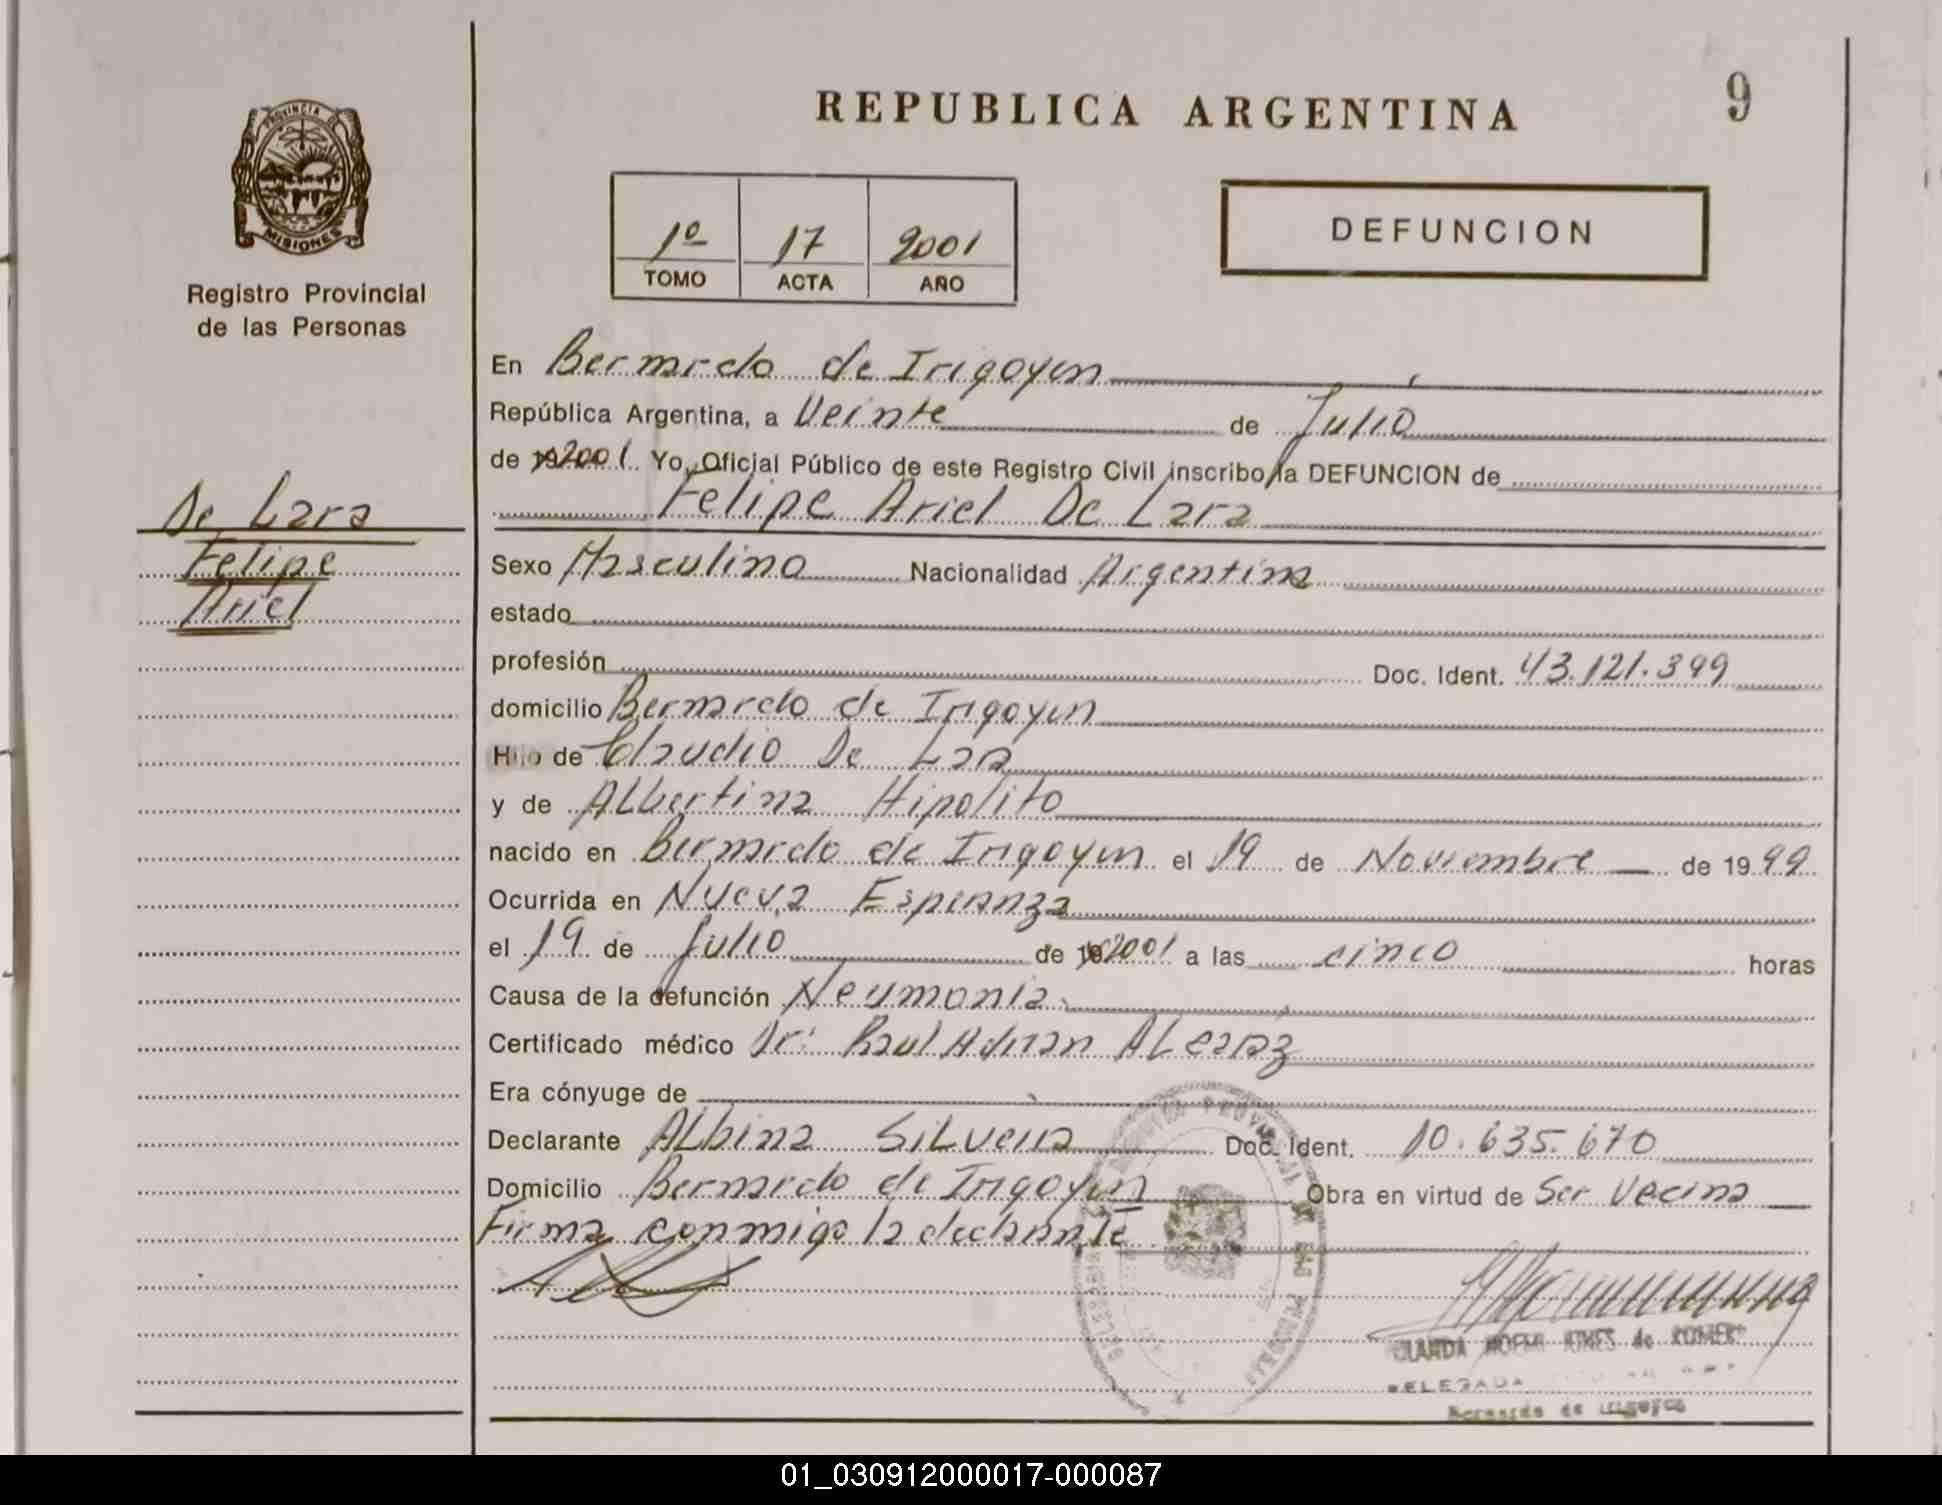 REPUBLICA ARGENTINA
9
PROVINCIA DE
MISIONES
Registro Provincial
de las Personas
1º 17 2001
TOMO ACTA AÑO
DEFUNCION
En Bernardo de Irigoyen
República Argentina, a Veinte de Julio
de 2001 Yo, Oficial Público de este Registro Civil inscribo la DEFUNCION de
Felipe Ariel De Lara
De Lara
Felipe
Ariel
Sexo Masculino Nacionalidad Argentina
estado
profesión Doc. Ident. 43.121.399
domicilio Bernardo de Irigoyen
Hijo de Claudio De Lara
y de Albertina Hipolito
nacido en Bernardo de Irigoyen el 19 de Noviembre de 1999
Ocurrida en Nueva Esperanza
el 19 de Julio de 2001 a las cinco horas
Causa de la defunción Neumonia
Certificado médico Dr: Raul Adrian Alcaraz
Era cónyuge de
Declarante Albina Silveira Doc. Ident. 10.635.670
Domicilio Bernardo de Irigoyen Obra en virtud de Ser Vecina
Firma conmigo la declarante
de
DELEGADA
Bernardo de Irigoyen
01_030912000017-000087